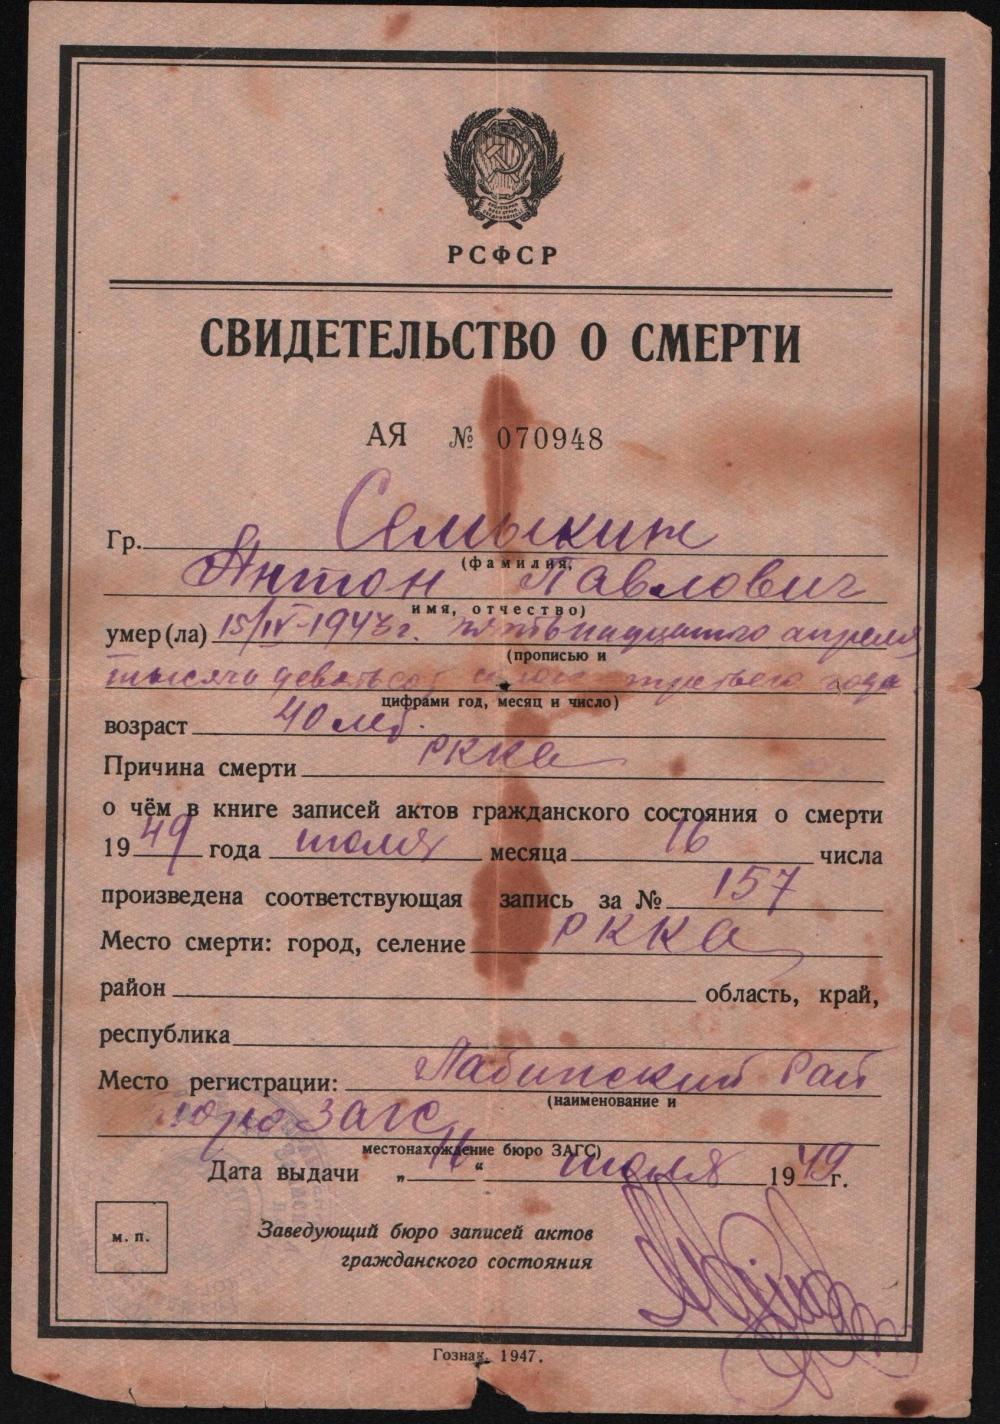 РСФСР
СВИДЕТЕЛЬСТВО О СМЕРТИ
АЯ № 070948
Гр. Семыкин
(фамилия,
Антон Павлович
имя, отчество)
умер(ла) 15/IV-1943 г. пятьнадцатого апреля
(прописью и
тысяча девятьсот сорок третьего года
цифрами год, месяц и число)
возраст 40 лет.
Причина смерти РККА
о чём в книге записей актов гражданского состояния о смерти
1949 года июля месяца 16 числа
произведена соответствующая запись за № 157
Место смерти: город, селение РККА
район область, край,
республика
Место регистрации: Лабинский Рай
(наименование и
бюро ЗАГС
местонахождение бюро ЗАГС)
Дата выдачи „16“ июля 1949 г.
м. п.
Заведующий бюро записей актов
гражданского состояния
Гознак. 1947.